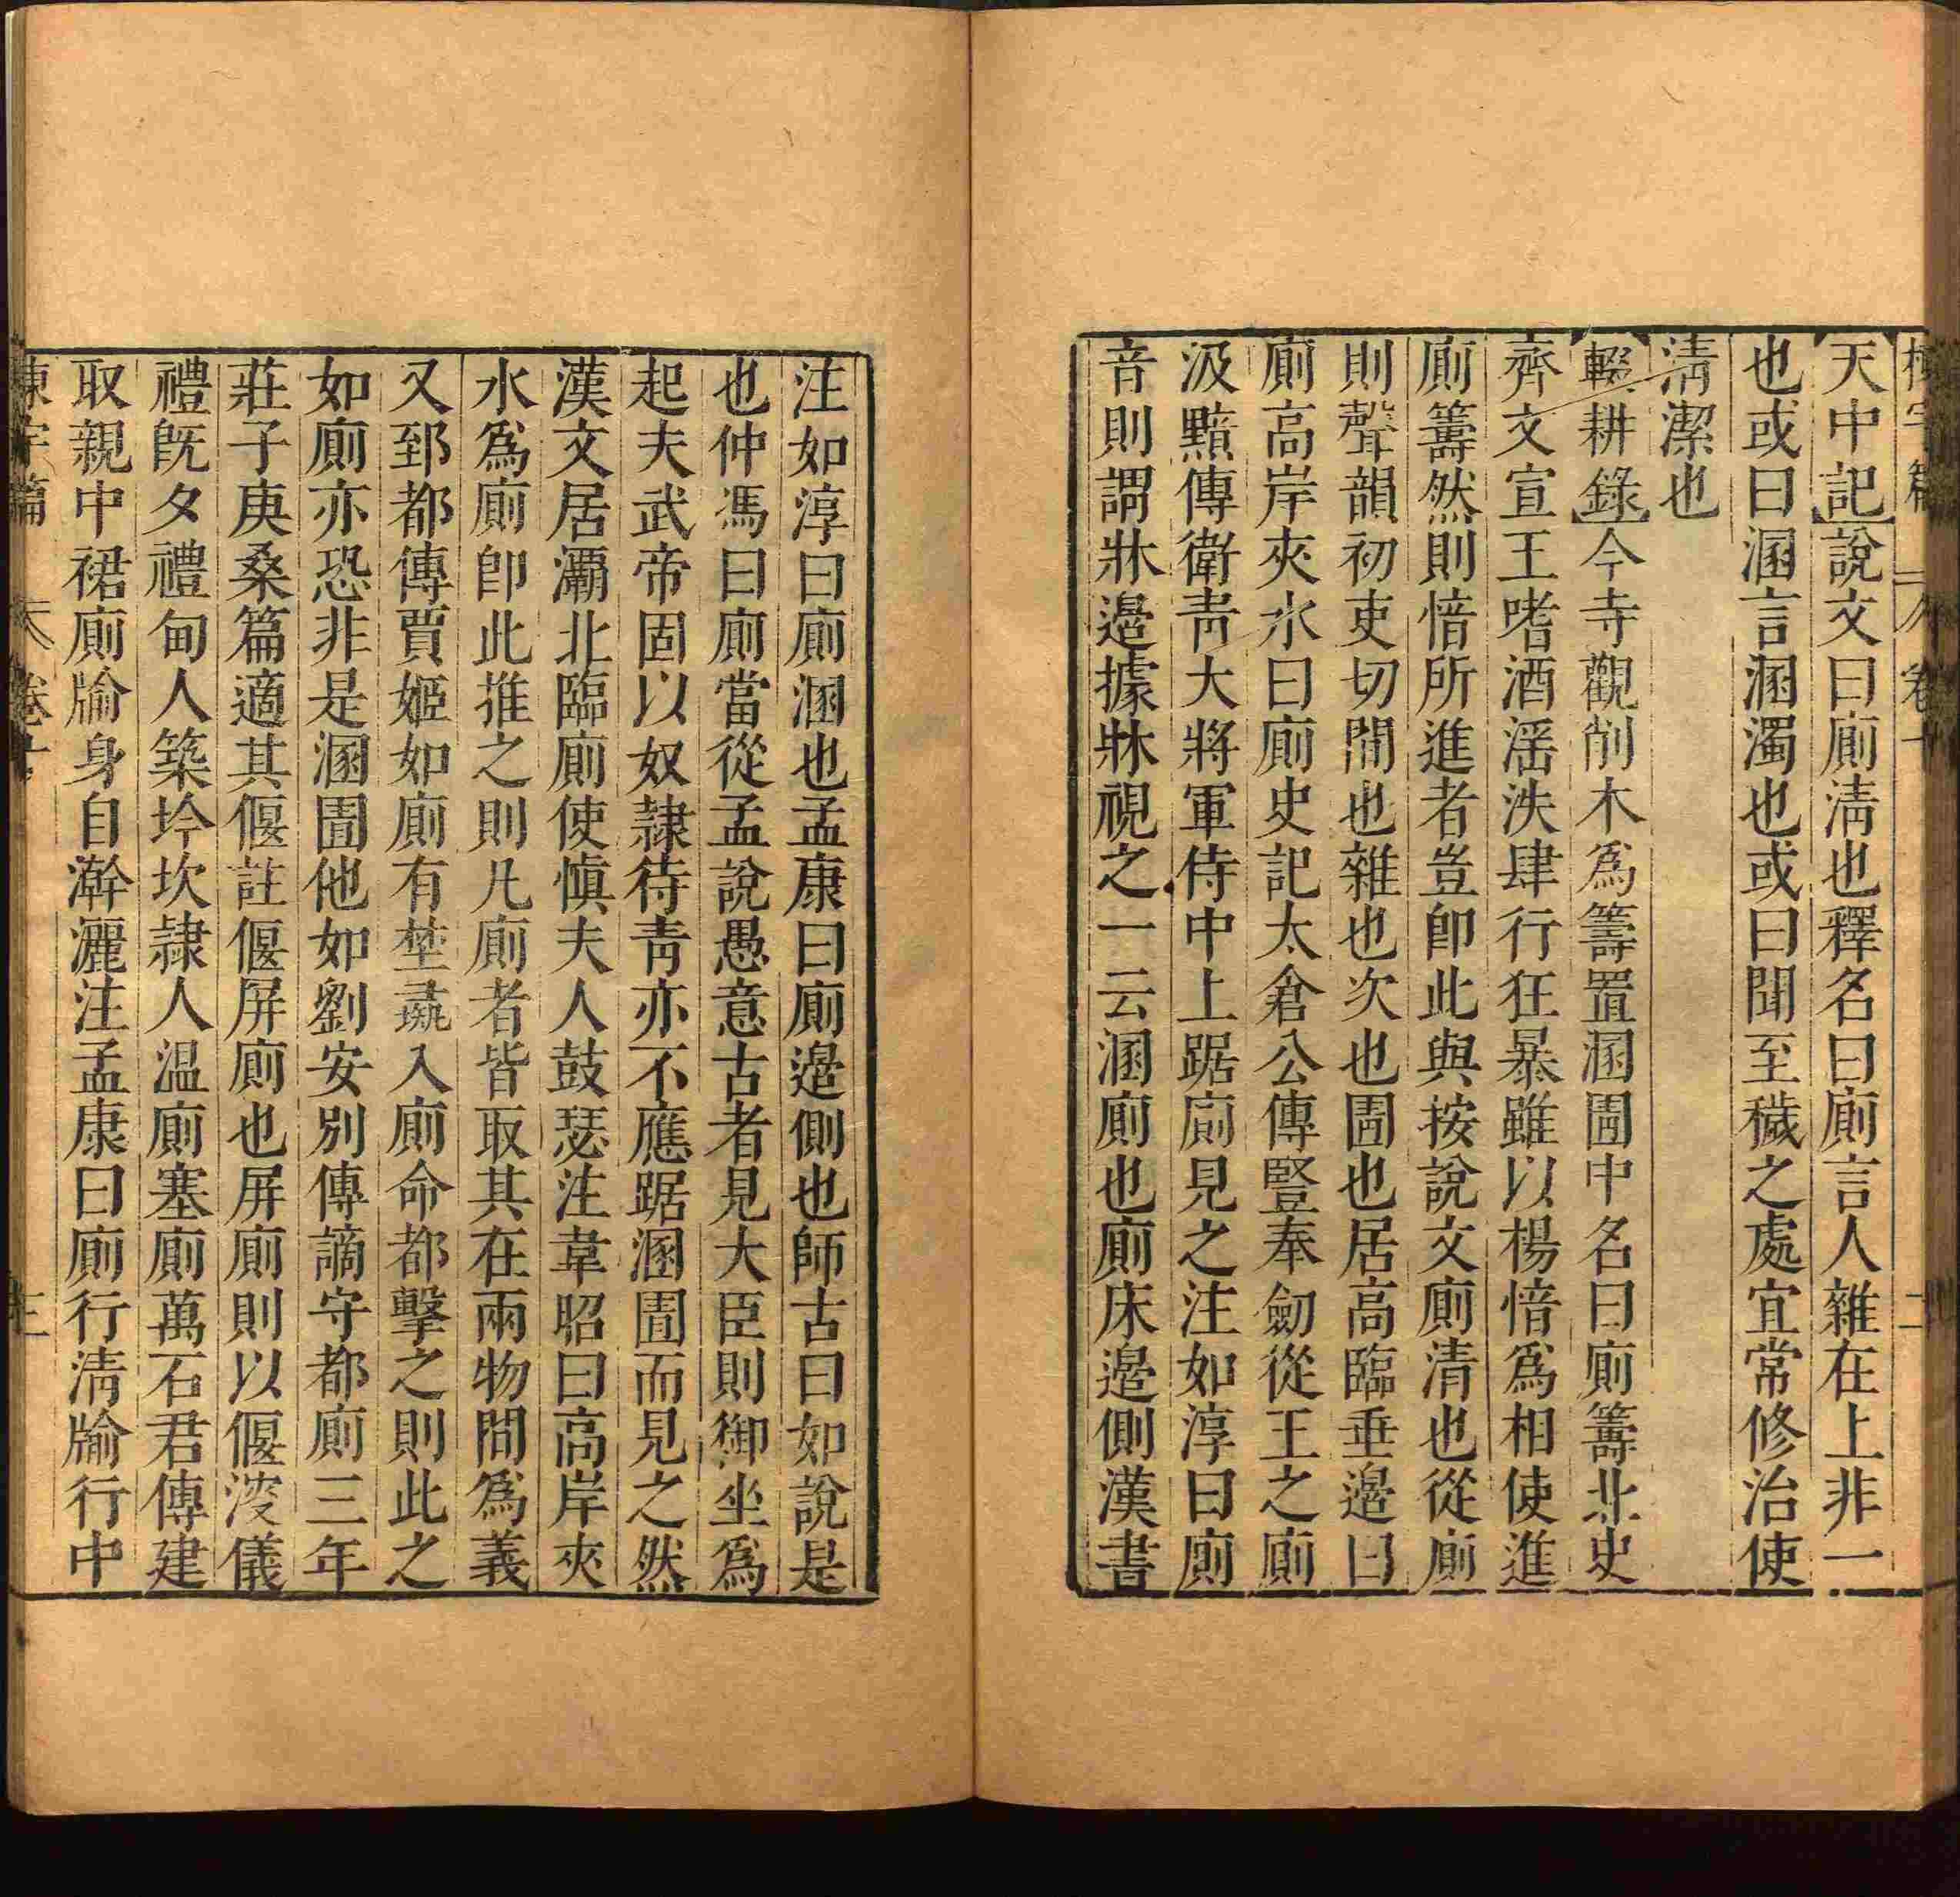 棟宇篇 卷十 二
天中記說文曰廁淸也釋名曰廁言人雜在上非一
也或曰溷言溷濁也或曰圊言至穢之處宜常修治使
淸潔也
輟耕錄今寺觀削木爲籌置溷圊中名曰廁籌北史
齊文宣王嗜酒淫泆肆行狂暴雖以楊愔爲相使進
廁籌然則愔所進者豈卽此與按說文廁清也從廁
則聲韻初吏切間也雜也次也圊也居高臨垂邉曰
廁高岸夾水曰廁史記太倉公傳豎奉劒從王之廁
汲黯傳衛靑大將軍侍中上踞廁見之注如淳曰廁
音則謂牀邉據牀視之一云溷廁也廁床邉側漢書
注如淳曰廁溷也孟康曰廁邉側也師古曰如說是
也仲馮曰廁當從孟說愚意古者見大臣則御坐爲
起夫武帝固以奴隷待靑亦不應踞溷圊而見之然
漢文居灞北臨廁使愼夫人鼓瑟注韋昭曰高岸夾
水爲廁卽此推之則凡廁者皆取其在兩物間爲義
又郅都傳賈姬如廁有埜彘入廁命都擊之則此之
如廁亦恐非是溷圊他如劉安別傳謫守都廁三年
莊子庚桑篇適其偃註偃屏廁也屏廁則以偃溲儀
禮旣夕禮甸人築坅坎隷人温廁塞廁萬石君傳建
取親中裙廁牏身自澣灑注孟康曰廁行淸牏行中
棟宇篇 卷十 三